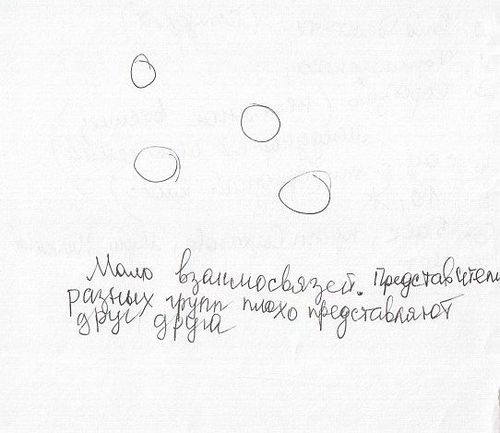 Мало взаимосвязей. Представители
разных групп плохо представляют
друг друга